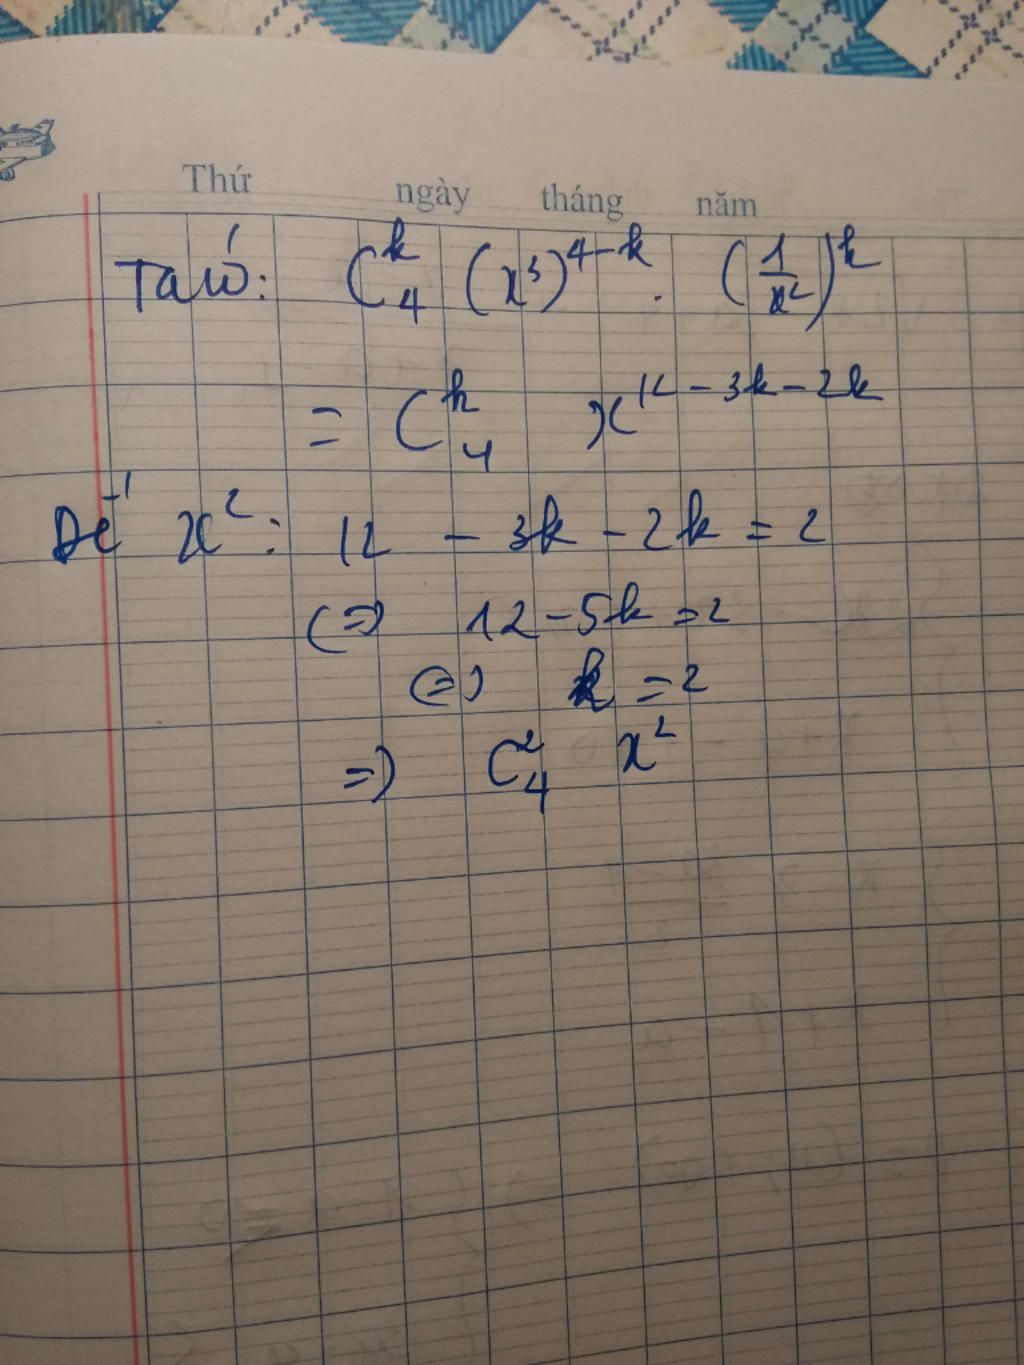 Thứ ngày tháng năm
Ta có: C₄ᵏ (x³)⁴⁻ᵏ . (1/x²)ᵏ
= C₄ᵏ x¹²⁻³ᵏ⁻²ᵏ
Để x²: 12 - 3k - 2k = 2
(=) 12 - 5k = 2
(=) k = 2
=) C₄² x²